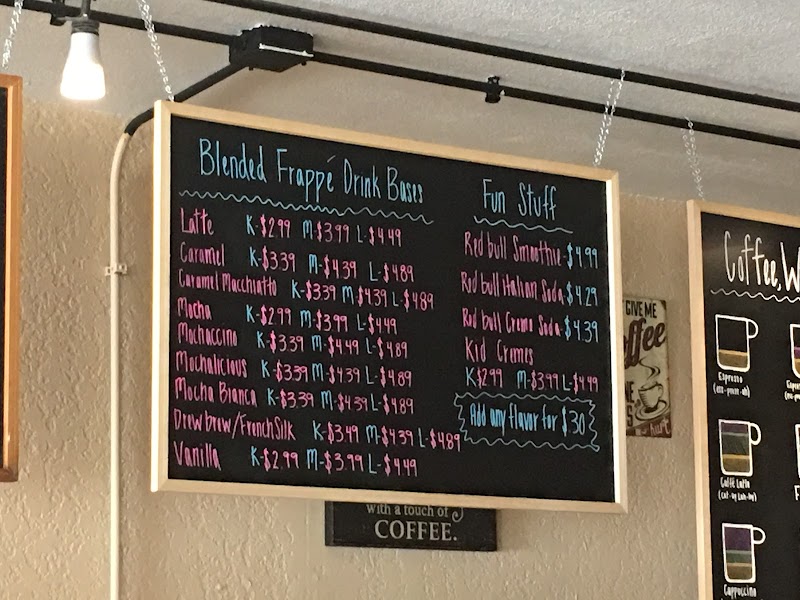 Blended Frappé Drink Bases
Latte K-$2.99 M-$3.99 L-$4.49
Caramel K-$3.39 M-$4.39 L-$4.89
Caramel Macchiatto K-$3.39 M-$4.39 L-$4.89
Mocha K-$2.99 M-$3.99 L-$4.49
Mochaccino K-$3.39 M-$4.49 L-$4.89
Mochalicious K-$3.39 M-$4.39 L-$4.89
Mocha Bianca K-$3.39 M-$4.39 L-$4.89
Drewbrew/French Silk K-$3.49 M-$4.39 L-$4.89
Vanilla K-$2.99 M-$3.99 L-$4.49
Fun Stuff
Red bull Smoothie-$4.99
Red bull Italian Soda-$4.29
Red bull Creme Soda-$4.39
Kid Cremes
K-$2.99 M-$3.99 L-$4.49
Add any flavor for $.30
with a touch of
COFFEE.
GIVE ME
Coffee, W
Espresso
Caffé Latte
Cappuccino